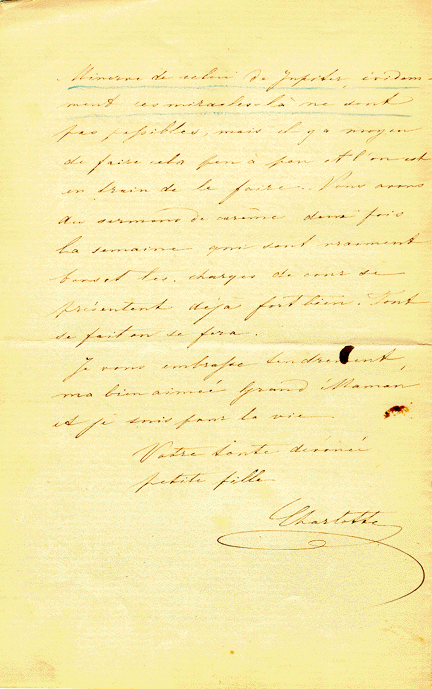 Minerve de celui de Jupiter, évidem-
ment ces miracles là ne sont
pas possibles, mais il y a moyen
de faire cela peu à peu et l'on est
en train de le faire. Nous avons
des sermons de carême deux fois
la semaine qui sont vraiment
bons et les charges de cour se
présentent déjà fort bien. Tout
se fait ou se fera.
Je vous embrasse tendrement,
ma bien aimée Grand'Maman,
et je suis pour la vie
Votre toute dévouée
petite fille
Charlotte